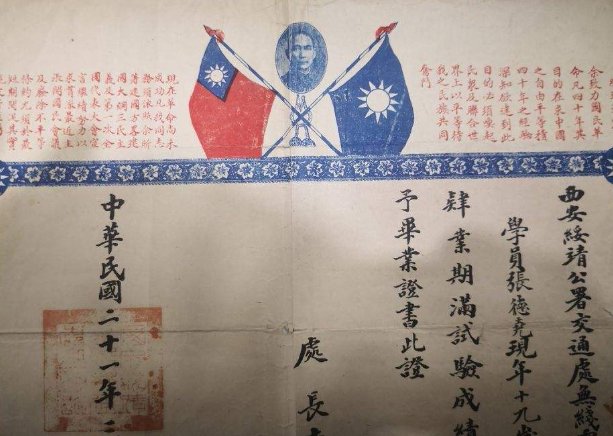 余致力國民革
命凡四十年其
目的在求中國
之自由平等積
四十年之經驗
深知欲達到此
目的必須喚起
民眾及聯合世
界上以平等待
我之民族共同
奮鬥
現在革命尚未
成功凡我同志
務須依照余所
著建國方略建
國大綱三民主
義及第一次全
國代表大會宣
言繼續努力以
求貫徹最近主
張開國民會議
及廢除不平等
條約尤須於最
短期間促其實
西安綏靖公署交通處無綫
學員張德堯現年十九歲
肄業期滿試驗成績
予畢業證書此證
處長
中華民國二十一年二